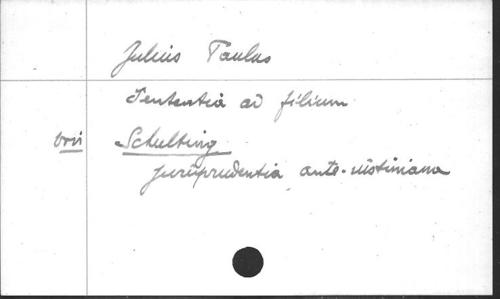 Julius Paulus
Sententia ad filium
vovi Schulting
jurisprudentia ante-iustiniana